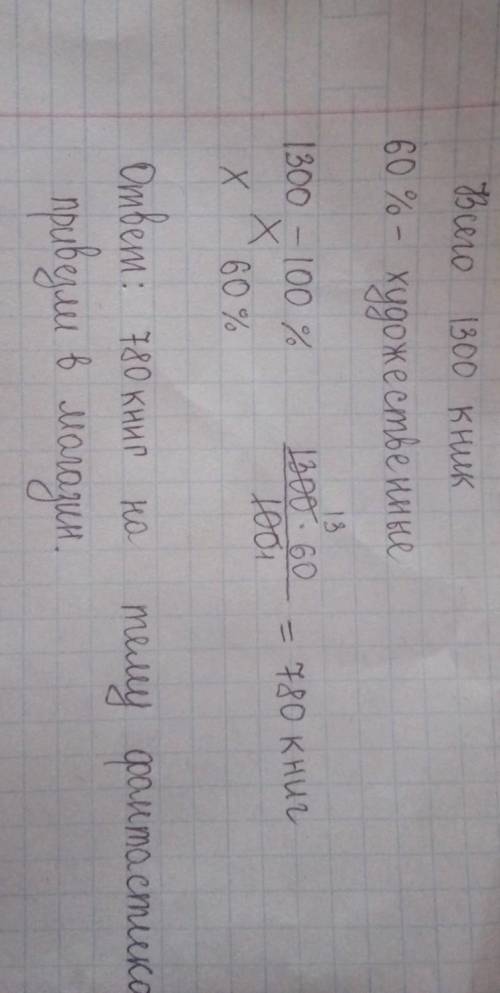 Всего 1300 кник
60% - художественные
1300 - 100%
х 60%
1300 · 60 13
100 1
= 780 книг
Ответ: 780 книг на тему фантастика
привезли в магазин.